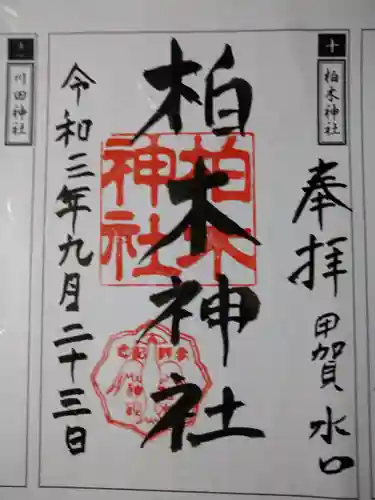 十
柏木神社
奉拝 甲賀 水口
柏木神社
柏木
神社
令和三年九月二十三日
川田神社